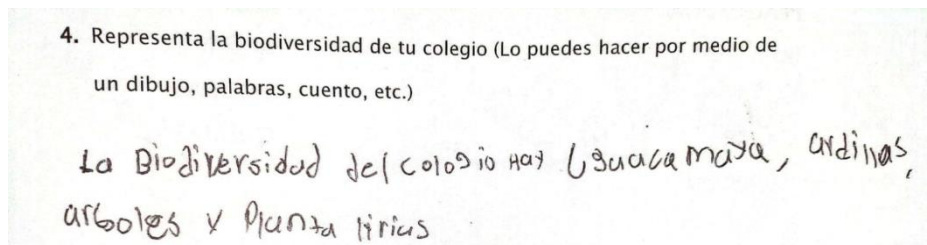 4. Representa la biodiversidad de tu colegio (Lo puedes hacer por medio de
un dibujo, palabras, cuento, etc.)
La Biodiversidad del cologio Hay Guacamaya, ardillas,
arboles y Planta lirius